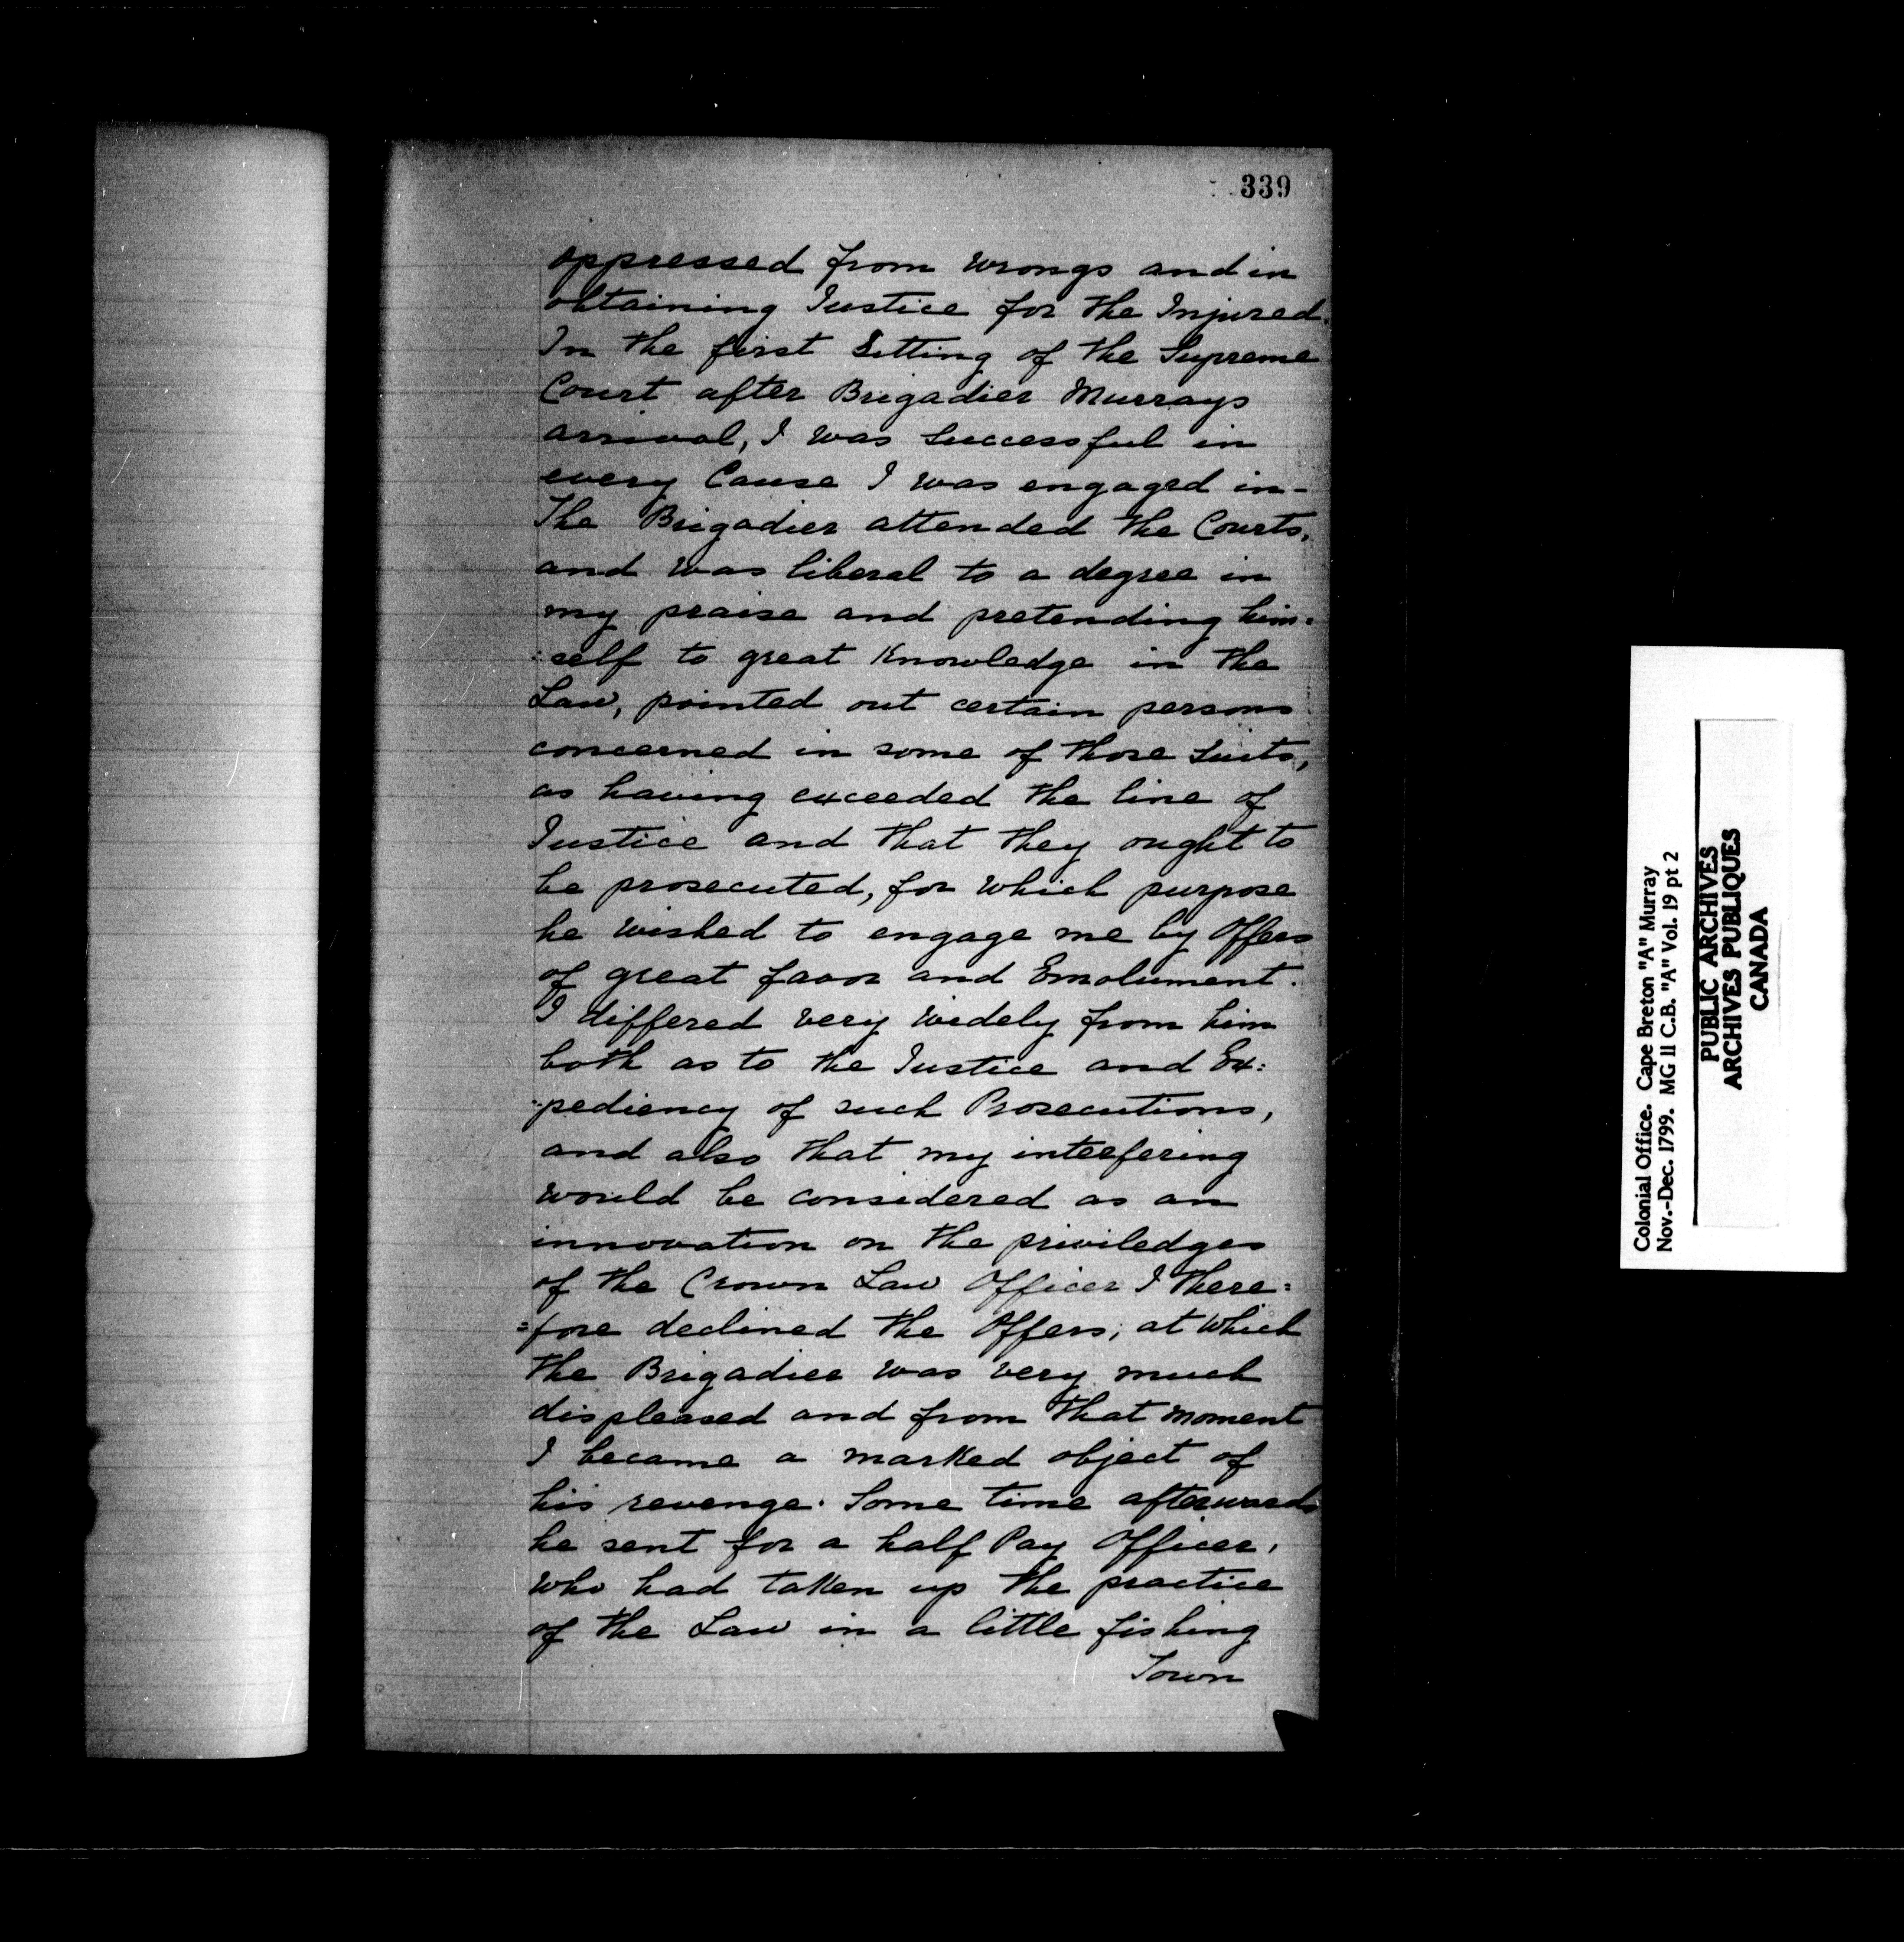 339
oppressed from wrongs and in
obtaining Justice for the Injured.
In the first Sitting of the Supreme
Court after Brigadier Murrays
arrival, I was Successful in
every Cause I was engaged in-
The Brigadier attended the Courts,
and was liberal to a degree in
my praise and pretending him=
=self to great Knowledge in the
Law, pointed out certain persons
concerned in some of those Suits,
as having exceeded the line of
Justice and that they ought to
be prosecuted, for which purpose
he wished to engage me by Offers
of great favor and Emolument.
I differed very widely from him
both as to the Justice and Ex=
=pediency of such Prosecutions,
and also that my interfering
would be considered as an
innovation on the priviledges
of the Crown Law Officer I there=
=fore declined the Offers, at which
the Brigadier was very much
displeased and from that moment
I became a marked object of
his revenge. Some time afterwards
he sent for a half Pay Officer,
who had taken up the practice
of the Law in a little fishing
Town
Colonial Office. Cape Breton "A" Murray
Nov.-Dec. 1799. MG 11 C.B. "A" Vol. 19 pt 2
PUBLIC ARCHIVES
ARCHIVES PUBLIQUES
CANADA